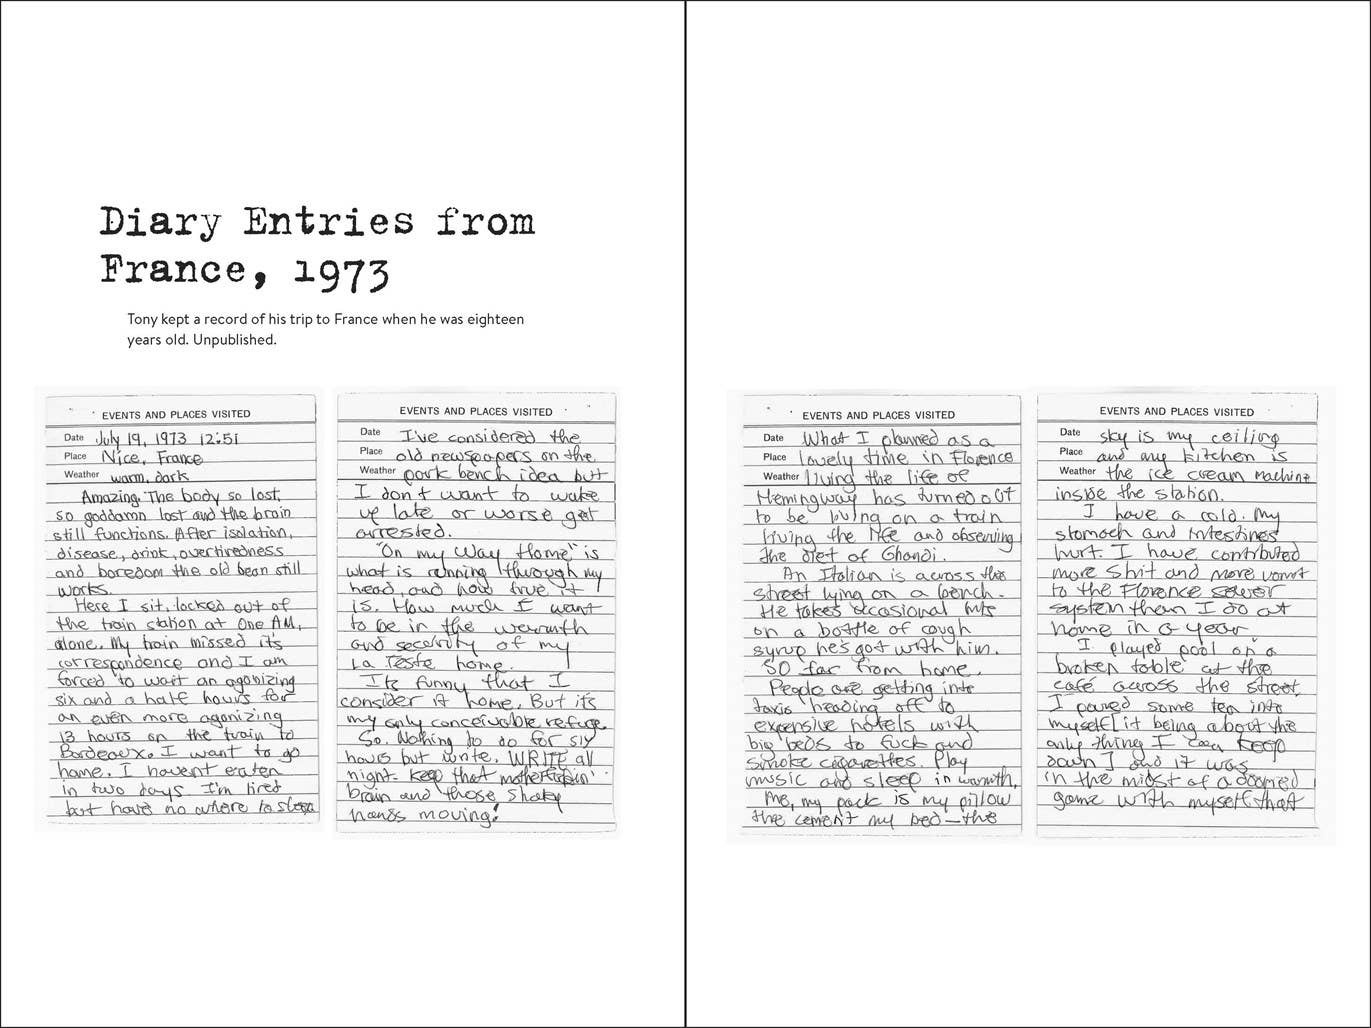 Diary Entries from
France, 1973
Tony kept a record of his trip to France when he was eighteen
years old. Unpublished.
EVENTS AND PLACES VISITED
Date July 19, 1973 12:51
Place Nice, France
Weather warm, dark
Amazing. The body so lost,
so goddamn lost and the brain
still functions. After isolation,
disease, drink, overtiredness
and boredom the old bean still
works.
Here I sit, locked out of
the train station at One AM,
alone. My train missed it's
correspondence and I am
forced to wait an agonizing
six and a half hours for
an even more agonizing
13 hours on the train to
Bordeaux. I want to go
home. I havent eaten
in two days I'm tired
but have no where to sleep
EVENTS AND PLACES VISITED
Date I've considered the
Place old newspapers on the
Weather park bench idea but
I don't want to wake
up late or worse get
arrested.
"On my Way Home" is
what is running through my
head, and how true it
is. How much I want
to be in the warmth
and security of my
La Teste home.
Its funny that I
consider it home. But its
my only conceivable refuge.
So. Nothing to do for six
hours but write. WRITE all
night. Keep that motherfuckin'
brain and those shaky
hands moving!
EVENTS AND PLACES VISITED
Date What I planned as a
Place lovely time in Florence
Weather living the life of
Hemingway has turned out
to be living on a train
living the life and observing
the diet of Ghandi.
An Italian is across the
street lying on a bench.
He takes occasional hits
on a bottle of cough
syrup he's got with him.
SO far from home.
People are getting into
taxis heading off to
expensive hotels with
big beds to fuck and
smoke cigarettes. Play
music and sleep in warmth.
Me, my pack is my pillow
the cement my bed—the
EVENTS AND PLACES VISITED
Date sky is my ceiling
Place and my kitchen is
Weather the ice cream machine
inside the station.
I have a cold. My
stomach and intestines
hurt. I have contributed
more shit and more vomit
to the Florence sewer
system then I do at
home in a year
I played pool on a
broken table at the
café across the street,
I poured some tea into
myself [it being about the
only thing I can keep
down] and it was
in the midst of a doomed
game with myself that